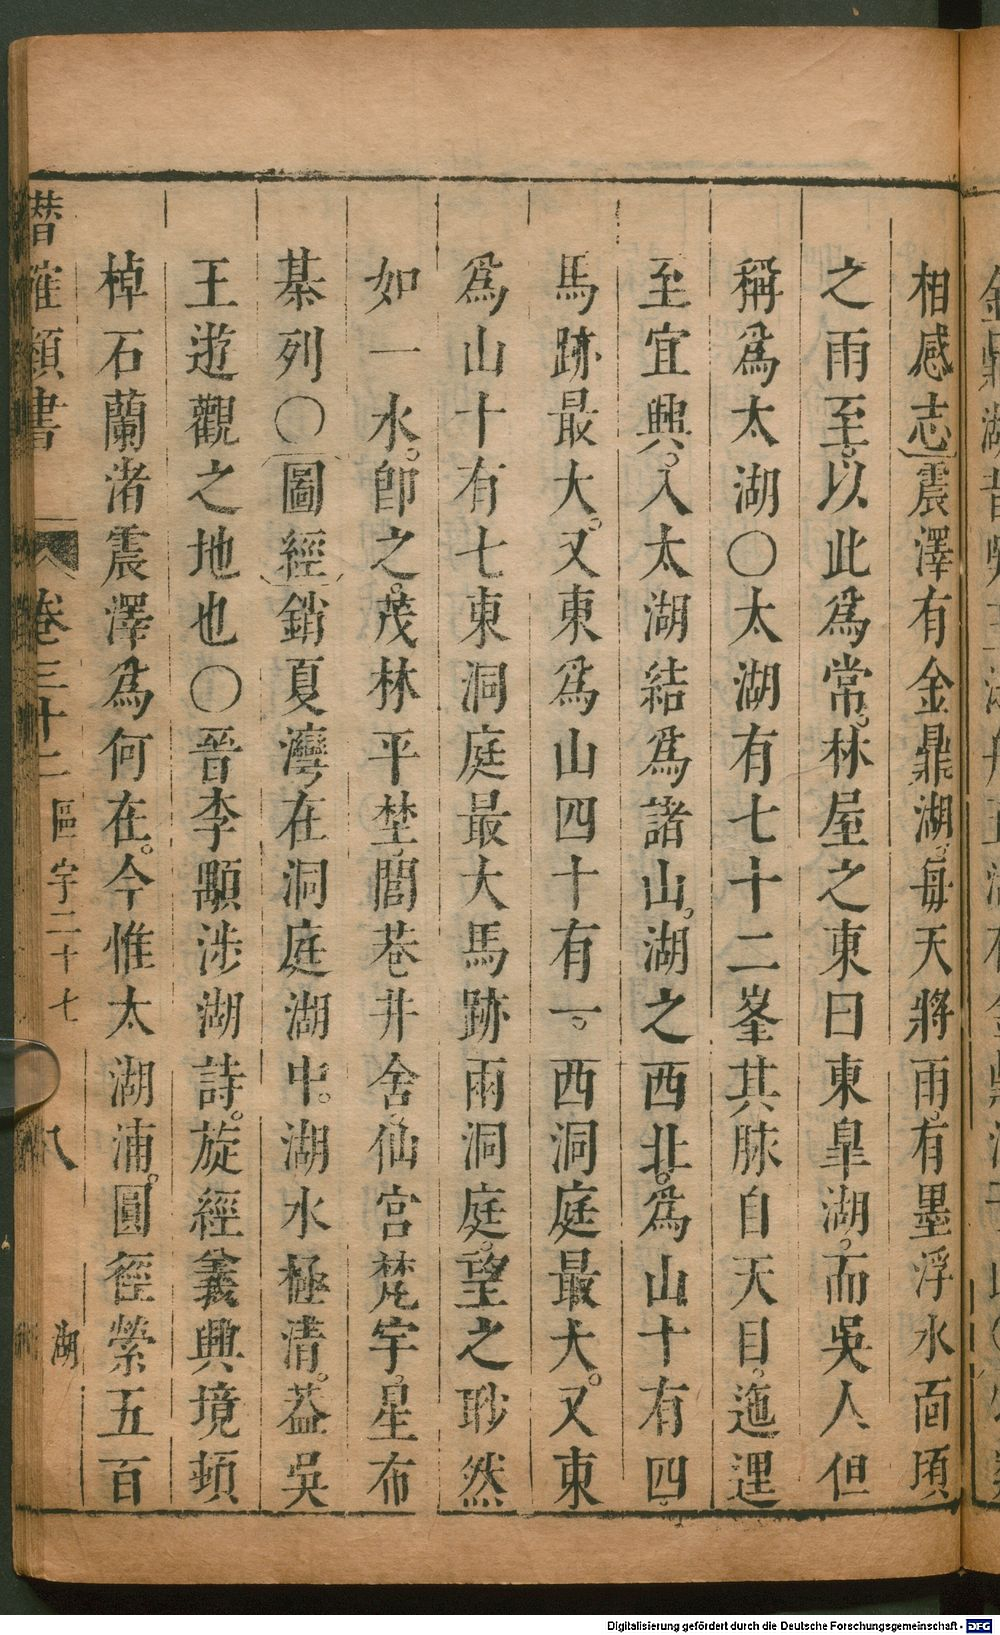 相感志震澤有金鼎湖。每天將雨。有墨浮水面頃
之雨至。以此爲常。林屋之東曰東臯湖。而吳人但
稱爲太湖〇太湖有七十二峯其脉自天目。迤逕
至宜興。入太湖結爲諸山。湖之西北。爲山十有四
馬跡最大。又東爲山四十有一。西洞庭最大。又東
爲山十有七東洞庭最大馬跡兩洞庭。望之眇然
如一水。卽之。茂林平埜。閭巷井舍。仙宮梵宇。星布
棊列〇圖經銷夏灣在洞庭湖中。湖水極淸。葢吳
王遊觀之地也〇晉李顒涉湖詩。旋經義興境頓
棹石蘭渚震澤爲何在。今惟太湖浦。圓徑縈五百
卷三十二 區宇二十七 八 湖
Digitalisierung gefördert durch die Deutsche Forschungsgemeinschaft - DFG